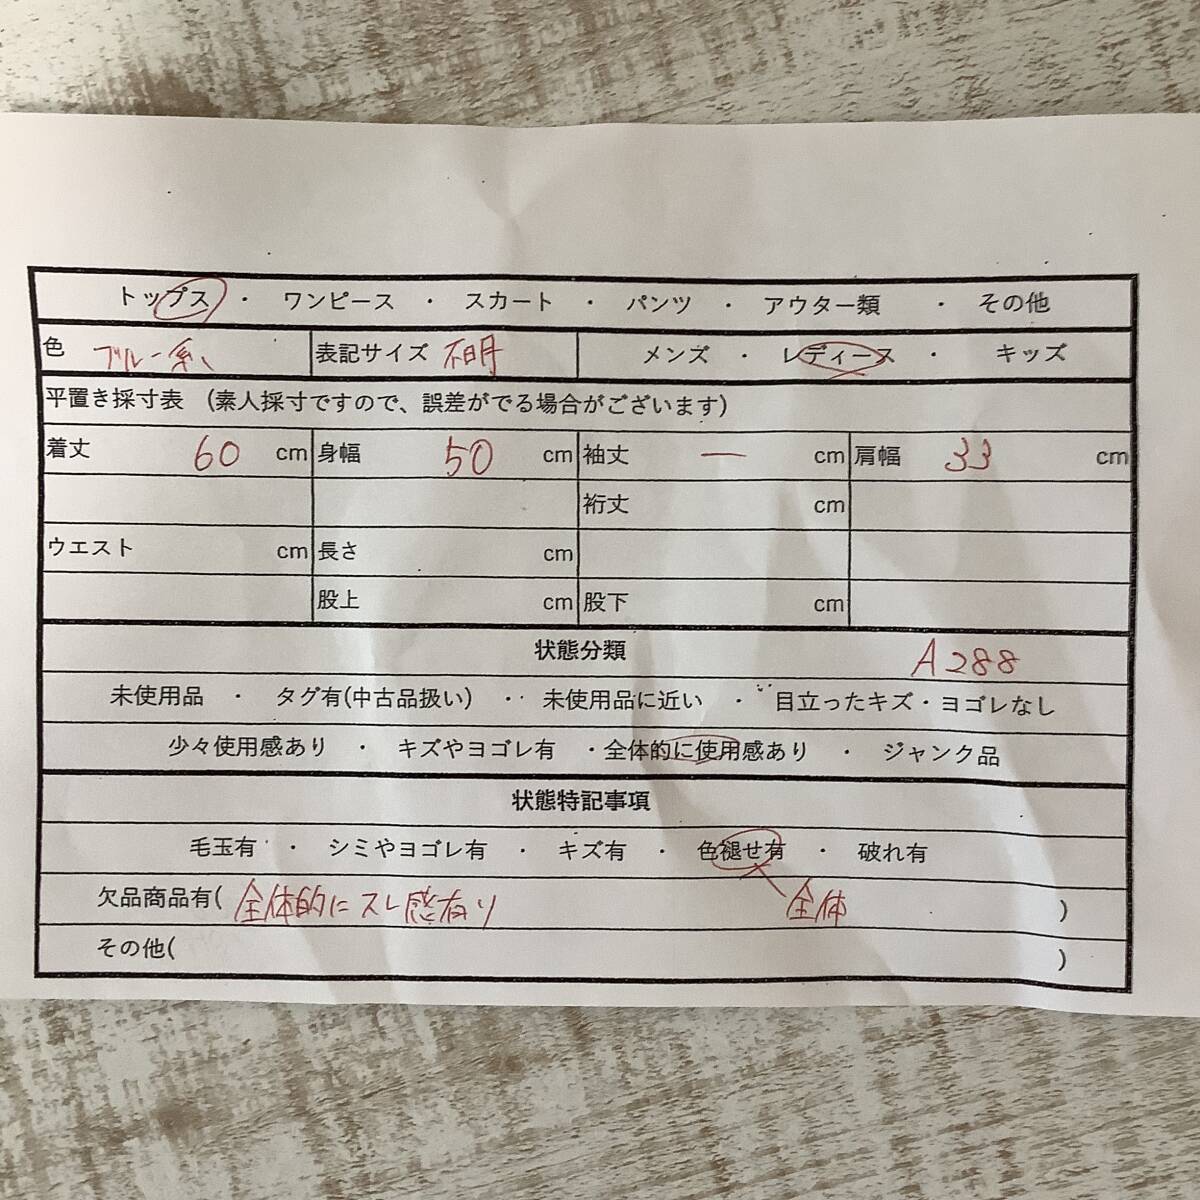 トップス ・ ワンピース ・ スカート ・ パンツ ・ アウター類 ・ その他
色 ブルー系 表記サイズ 不明 メンズ ・ レディース ・ キッズ
平置き採寸表 (素人採寸ですので、誤差がでる場合がございます)
着丈 60 cm 身幅 50 cm 袖丈 ー cm 肩幅 33 cm
裄丈 cm
ウエスト cm 長さ cm
股上 cm 股下 cm
状態分類 A288
未使用品 ・ タグ有(中古品扱い) ・・ 未使用品に近い ・ 目立ったキズ・ヨゴレなし
少々使用感あり ・ キズやヨゴレ有 ・全体的に使用感あり ・ ジャンク品
状態特記事項
毛玉有 ・ シミやヨゴレ有 ・ キズ有 ・ 色褪せ有 ・ 破れ有
欠品商品有( 全体的にスレ感有り 全体 )
その他( )